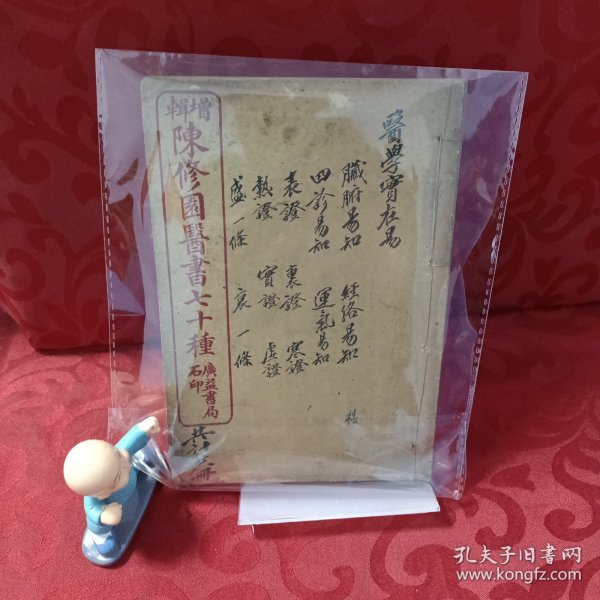 醫學實在易
臟腑易知 經絡易知
四診易知 運氣易知
表證 裏證 寒證
熱證 實證 虛證
盛一條 衰一條
楊
增輯
陳修園醫書七十種
廣益書局
石印
共計 冊
孔夫子旧书网
www.kongfz.com